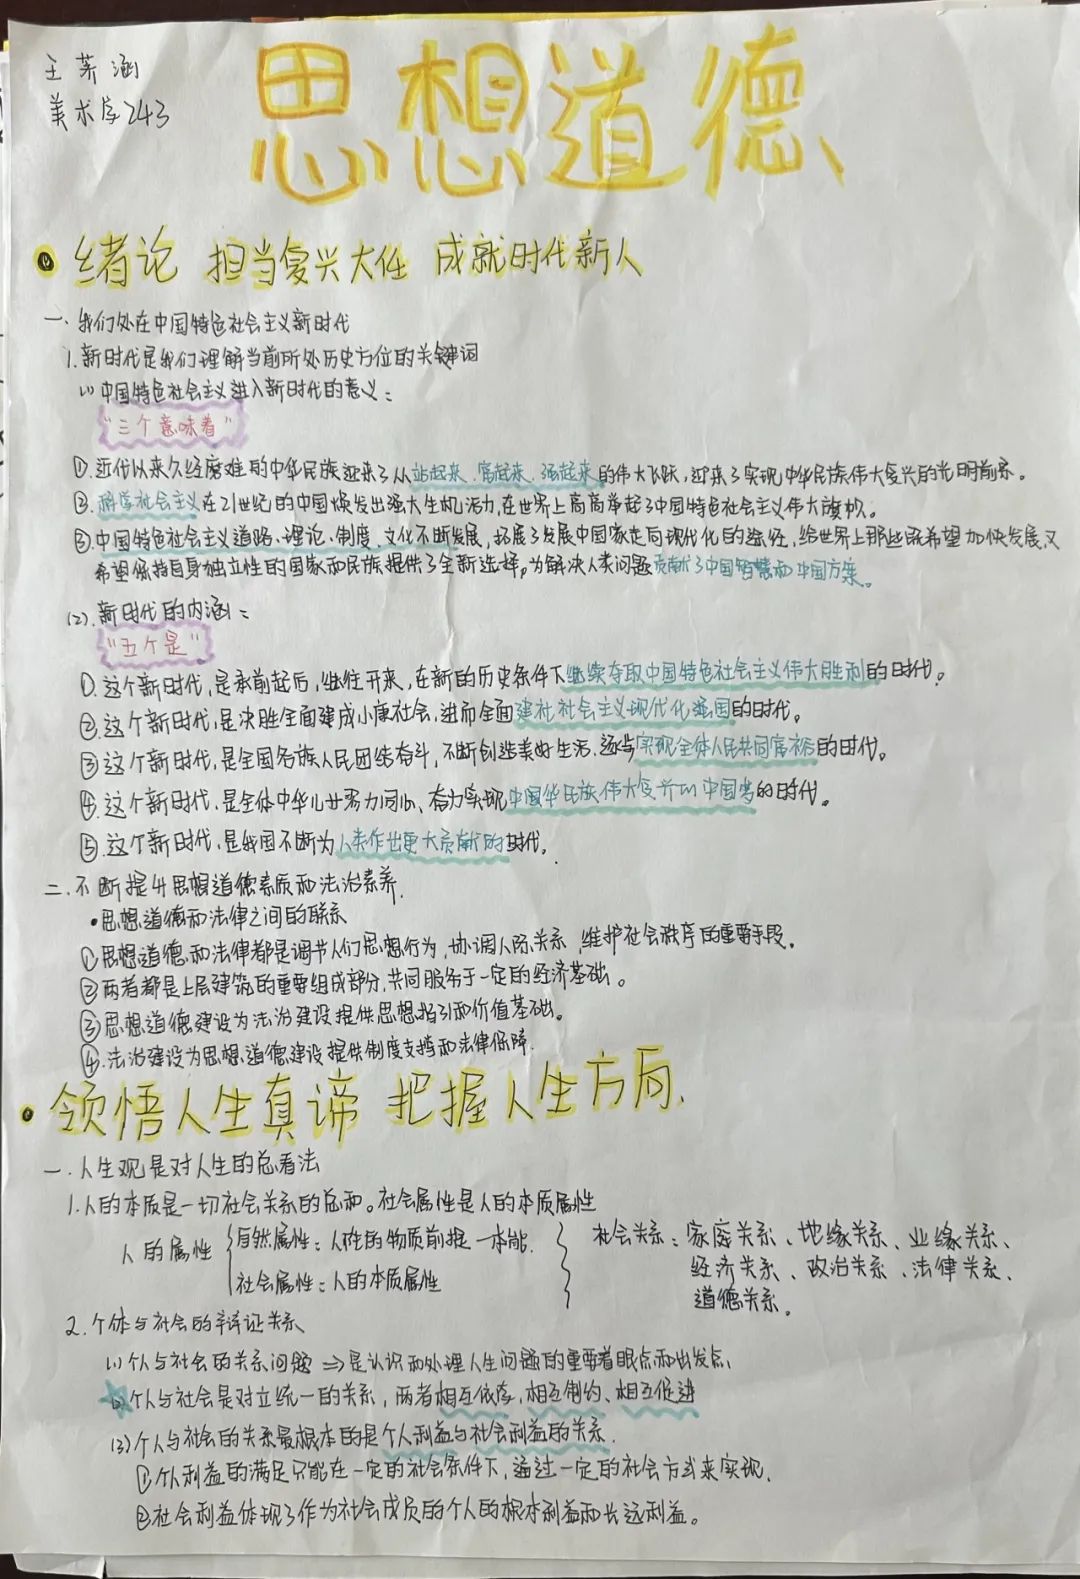 王荞涵
美术学243
思想道德
绪论 担当复兴大任 成就时代新人
一、我们处在中国特色社会主义新时代
1.新时代是我们理解当前所处历史方位的关键词
(1)中国特色社会主义进入新时代的意义:
"三个意味着"
①.近代以来久经磨难的中华民族迎来了从站起来、富起来、强起来的伟大飞跃,迎来了实现中华民族伟大复兴的光明前景。
②.科学社会主义在21世纪的中国焕发出强大生机活力,在世界上高高举起了中国特色社会主义伟大旗帜。
③.中国特色社会主义道路、理论、制度、文化不断发展,拓展了发展中国家走向现代化的途径,给世界上那些既希望加快发展又
希望保持自身独立性的国家和民族提供了全新选择,为解决人类问题贡献了中国智慧和中国方案。
(2).新时代的内涵:
"五个是"
①.这个新时代,是承前起后,继往开来,在新的历史条件下继续夺取中国特色社会主义伟大胜利的时代。
②.这个新时代,是决胜全面建成小康社会,进而全面建社社会主义现代化强国的时代。
③这个新时代,是全国各族人民团结奋斗,不断创造美好生活,逐步实现全体人民共同富裕的时代。
④.这个新时代,是全体中华儿女努力同心、奋力实现中国华民族伟大复兴的中国梦的时代。
⑤.这个新时代,是我国不断为人类作出更大贡献的时代。
二.不断提升思想道德素质和法治素养.
•思想道德和法律之间的联系
①思想道德和法律都是调节人们思想行为,协调人际关系,维护社会秩序的重要手段。
②两者都是上层建筑的重要组成部分,共同服务于一定的经济基础。
③思想道德建设为法治建设提供思想指引和价值基础。
④.法治建设为思想道德建设提供制度支撑和法律保障.
领悟人生真谛 把握人生方向.
一.人生观是对人生的总看法
1.人的本质是一切社会关系的总和。社会属性是人的本质属性
人的属性
自然属性:人性的物质前提一本能.
社会属性:人的本质属性
社会关系:家庭关系、地缘关系、业缘关系、
经济关系、政治关系、法律关系、
道德关系。
2.个体与社会的辩证关系
(1)个人与社会的关系问题⇒是认识和处理人生问题的重要着眼点和出发点.
(2)个人与社会是对立统一的关系,两者相互依存,相互制约、相互促进
(3)个人与社会的关系最根本的是个人利益与社会利益的关系.
①个人利益的满足只能在一定的社会条件下,通过一定的社会方式来实现.
②社会利益体现了作为社会成员的个人的根本利益和长远利益。